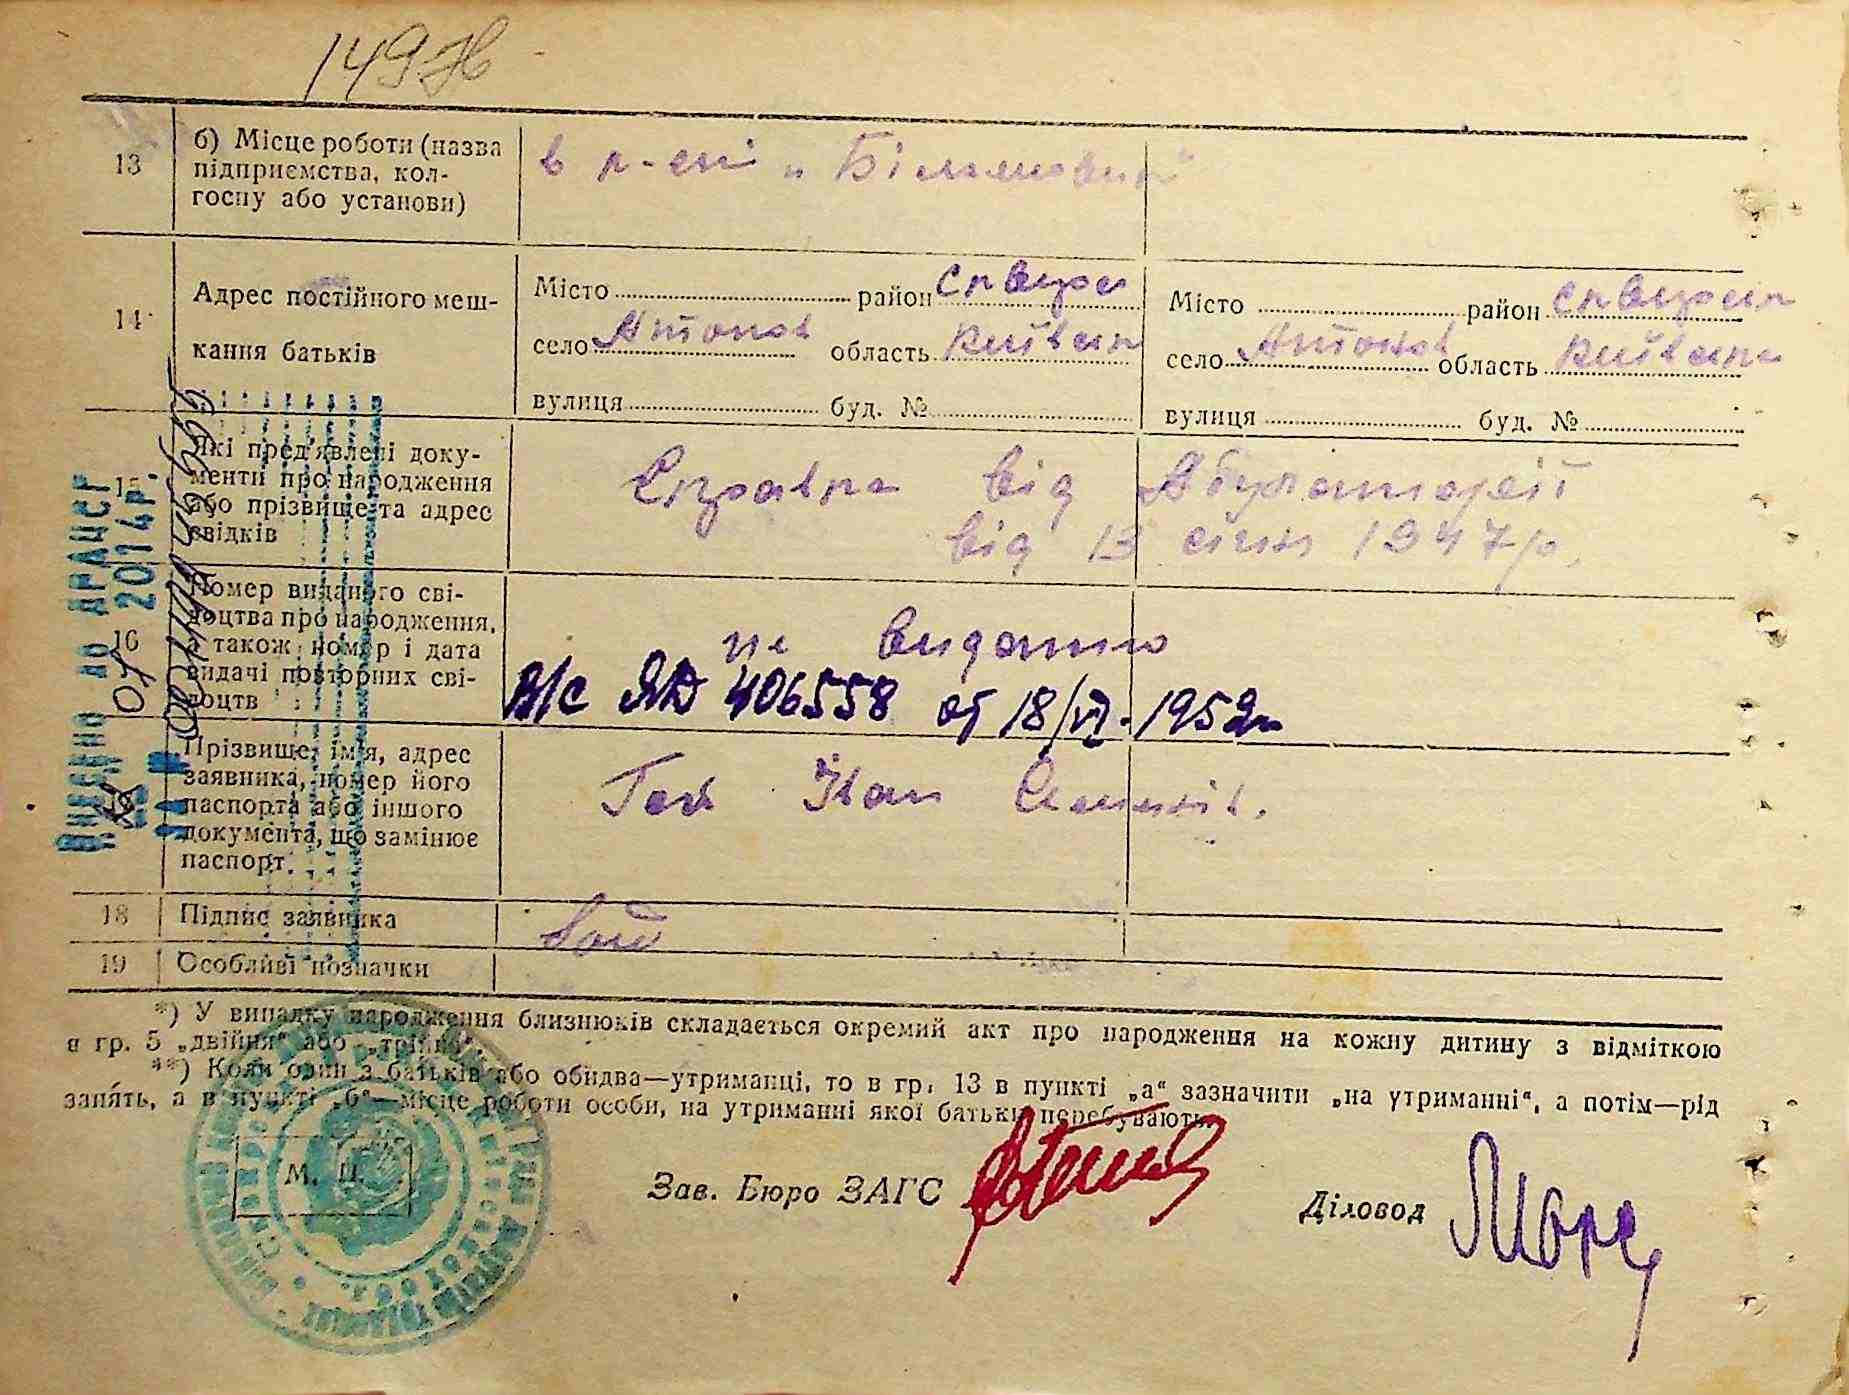 13
б) Місце роботи (назва
підприємства, кол-
госпу або установи)
в
14
Адрес постійного меш-
кання батьків
Місто район Сквирс
село Антонов область Київськ
вулиця буд. №
Місто район Сквирськ
село Антонов область Київськ
вулиця буд. №
15
Які пред'явлені доку-
менти про народження
або прізвище та адрес
свідків
Справка від Абуляторії
від 13 січня 1947 р.
16
Номер виданого сві-
доцтва про народження,
а також номер і дата
видачі повторних сві-
доцтв
не видано
В/С ЯД 406558 от 18/VI-1952г
Прізвище, ім'я, адрес
заявника, номер його
паспорта або іншого
документа, що замінює
паспорт.
Гак Іван
18
Підпис заявника
19
Особливі позначки
Внесено до ДРАЦСГ
07 2014р.
*) У випадку народження близнюків складається окремий акт про народження на кожну дитину з відміткою
в гр. 5 „двійня“ або „трійня“.
**) Коли один з батьків або обидва—утриманці, то в гр. 13 в пункті „а“ зазначити „на утриманні“, а потім—рід
занять, а в пункті „б“—місце роботи особи, на утриманні якої батьки перебувають.
М. П.
Зав. Бюро ЗАГС
Діловод